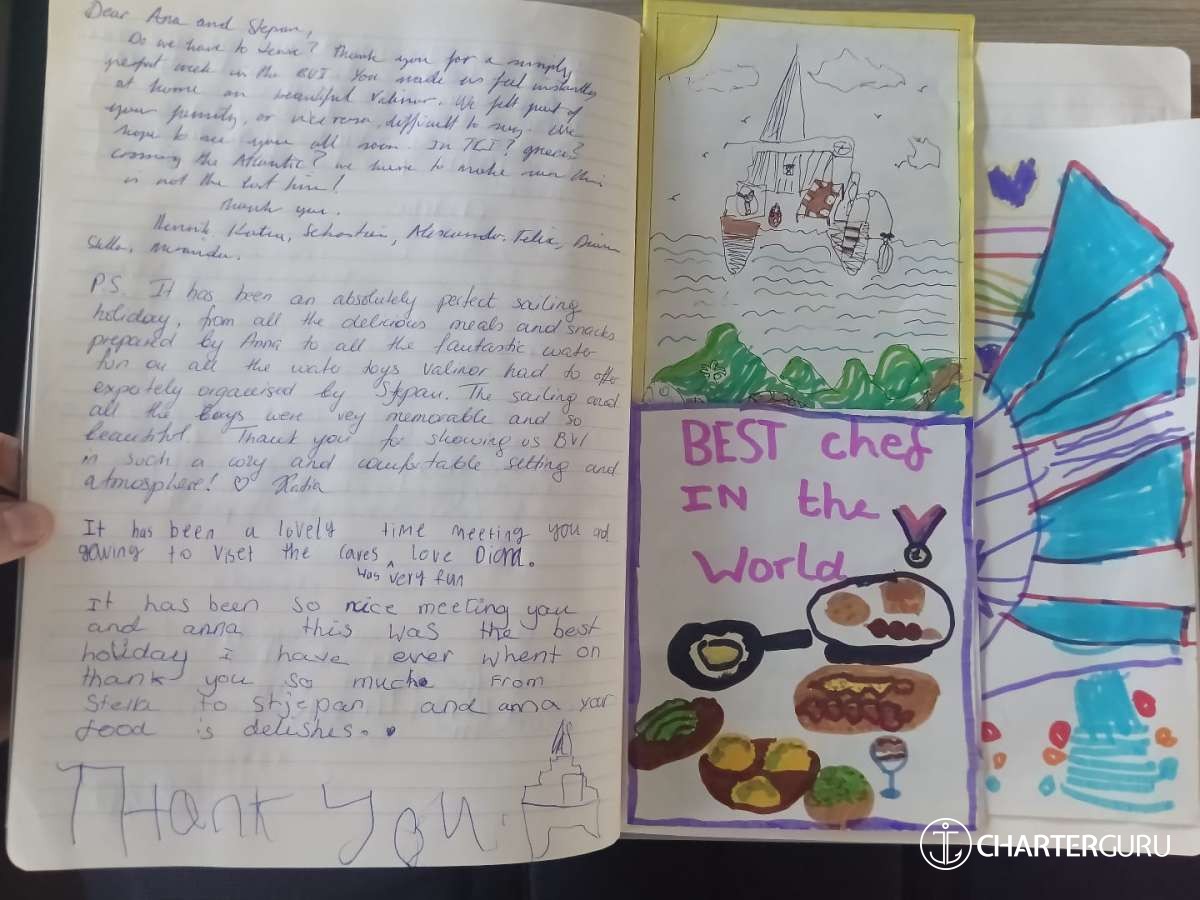 Dear Ana and Stepan,
Do we have to leave? Thank you for a simply
perfect week in the BVI. You made us feel instantly
at home on beautiful Valinor. We felt part of
your family, or vice versa, difficult to say. We
hope to see you all soon. In TCI? Greece?
Crossing the Atlantic? We have to make sure this
is not the last time!
Thank you.
Henrik, Katia, Sebastian, Alexander, Felix, Diana
Stella,
PS. It has been an absolutely perfect sailing
holiday, from all the delicious meals and snacks
prepared by Anna to all the fantastic water
fun on all the water toys Valinor had to offer
expertely organised by Stjepan. The sailing and
all the bays were very memorable and so
beautiful. Thank you for showing us BVI
in such a cozy and comfortable setting and
atmosphere! ♡ Katia
It has been a lovely time meeting you and
gowing to viset the caves love Diana.
was very fun
It has been so nice meeting you
and anna this was the best
holiday I have ever whent on
thank you so much from
Stella to stjepan and anna your
food is delishes.
Thank You
BEST chef
IN the
World
1
CHARTERGURU